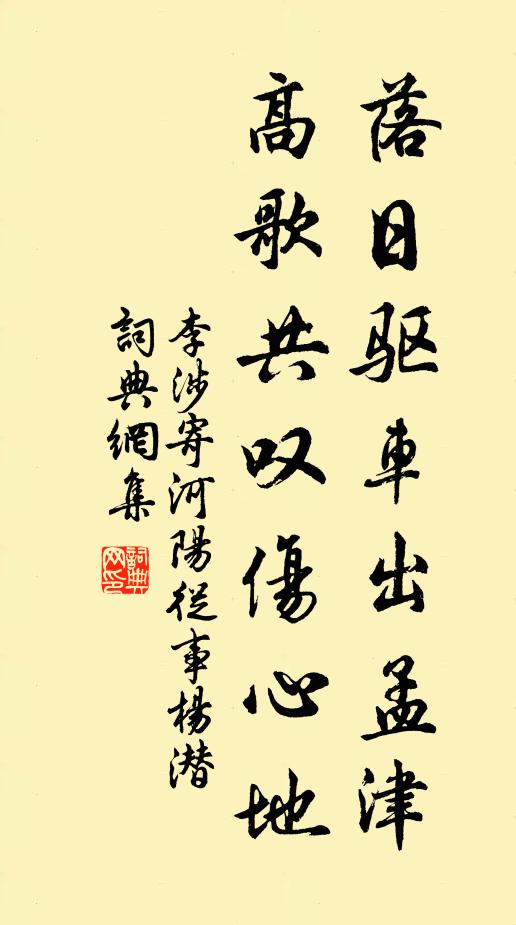 落日驱車出孟津
高歌共叹傷心地
李涉寄河陽從事楊潜
詞典網集
詞典網印